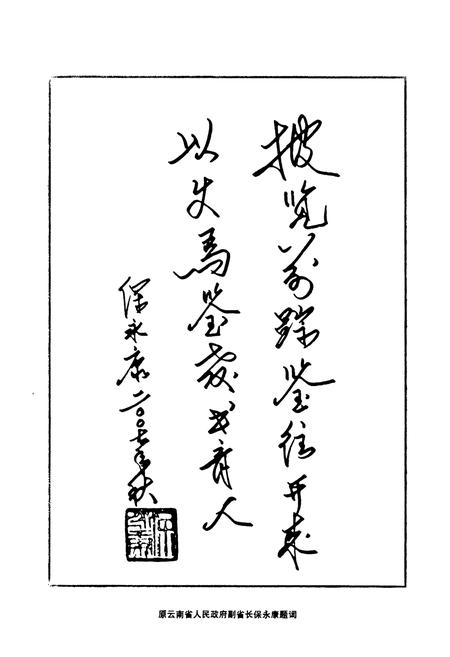 披览前踪鉴往开来
以史為鉴教书育人
保永康二〇〇七年秋
原云南省人民政府副省长保永康题词